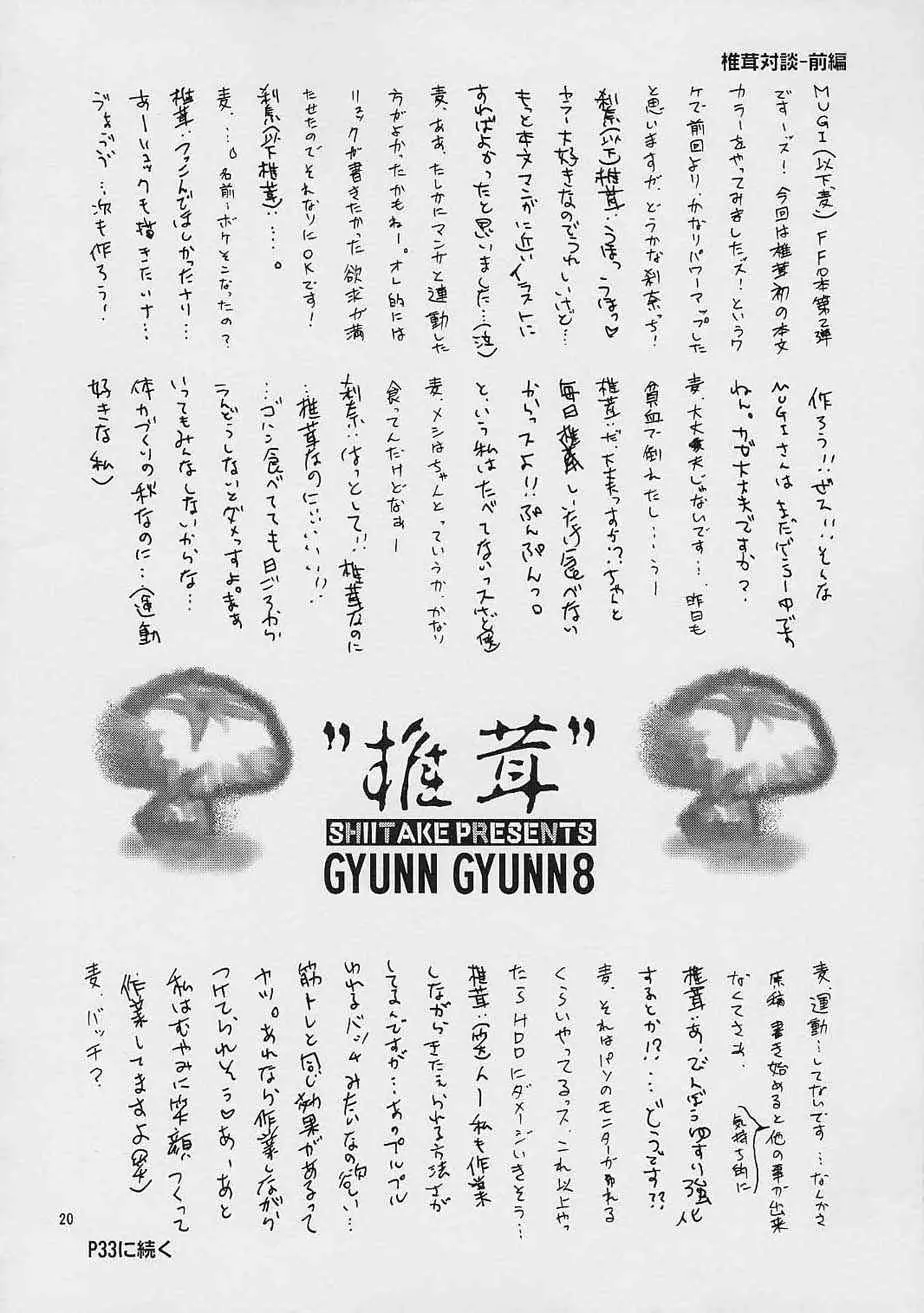 椎茸対談-前編
MUGI(以下麦)FF日本第2弾
ですーズ!今回は椎茸初の本文
カラーをやってみましたッズ!というワ
ケで前回よりかなりパワーアップした
と思いますがどうかな刹奈っち!
刹奈(以下)椎茸:うほっうほっ♡
カラー大好きなのでうれしいけど…
もっと本文マンガに近いイラストに
すればよかったと思いました…(泣)
麦、ああ、たしかにマンガと連動した
方がよかったかもねー。オレ的には
リュックが書きたかった欲求が満
たせたのでそれなりにOKです!
刹奈(以下椎茸):…。
麦、…。名前ーボケそこなったの?
椎茸:つっこんでほしかったナリ…
あーリュックも描きたいナ…
うおおお…次も作ろう!
作ろう!!ぜえ!!そんな
MUGIさんはまだげんこー中です
ねん。カゼ大丈夫ですか?
麦、大丈夫じゃないです…、昨日も
貧血で倒れたし…うー
椎茸:だ、大丈夫っすか!?ちゃんと
毎日椎茸しいたけ食べない
からっスよ!!ぷんぷんっ。
という私はたべてないっスけど(笑)
麦、メシはちゃんとっていうか、かなり
食ってんだけどなぁー
刹奈:はっとして!!椎茸なのに
…椎茸なのにぃぃぃぃ!!
…ゴハン食べてても日ごろから
うんどうしないとダメっすよ。まぁ
いってもみんなしないからな…
体力づくりの秋なのに…(運動
好きな私)
"椎茸"
SHIITAKE PRESENTS
GYUNN GYUNN8
麦、運動ーしてないです…なんかさ
原稿書き始めると他の事が出来
なくてさぁ
気持ち的に
椎茸:あ、びんぼうゆすり強化
するとか!?…どうっスす??
麦、それはパソのモニターがゆれる
くらいやってるっス、これ以上やっ
たらHDDにダメージいきそう…
椎茸:(笑)んー私も作業
しながらきたえられる方法さが
してるんですが…あのプルプル
ゆれるバンドみたいなの欲しい…
筋トレと同じ効果があるって
ヤツ。あれなら作業しながら
つけてられそう♡あーあと
私はむやみに笑顔つくって
作業してますよ(笑)
麦、バッチ?
20
P33に続く